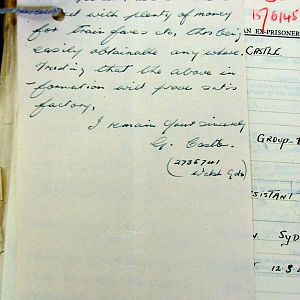 out with plenty of money
for train fares etc, this being
easily obtainable anywhere.
Trusting that the above in-
formation will prove satis
factory,
I remain Yours sincerely
G. Castle.
(2736741
Welsh Gds)
15/6/45
AN EX-PRISONER
CASTLE
GROUP-
SISTANT
SYD
12.3.